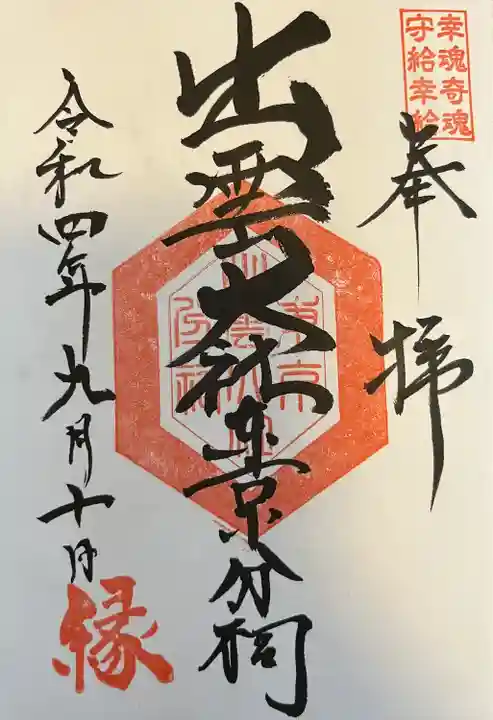 幸魂奇魂
守給幸給
奉拝
出雲大社東京分祠
令和四年九月十日
縁